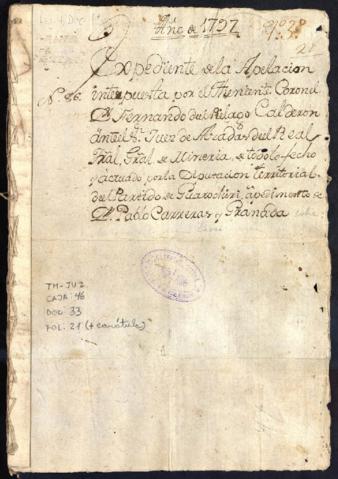 Año de 1797
Expediente de la Apelacion
N. 86. interpuesta por el Theniente Coronel
Dn. Fernando del Piélago Calderon
ante el Sr. Juez de Alzadas del Real
Tral. Gral. de Mineria, de todo lo fecho
y actuado por la Diputacion territorial
del Partido de Guarochiri, a pedimento de
Dn. Pablo Carreras y Granada
TM-JU2
CAJA: 46
DOC: 33
FOL: 21 (+ carátula)